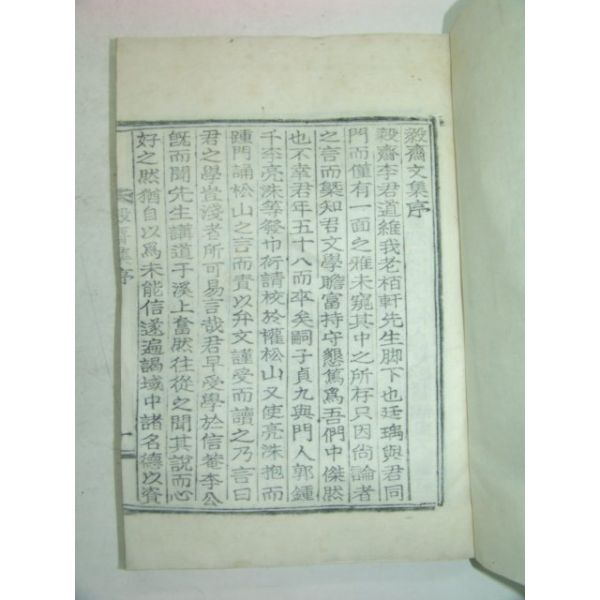 毅齋文集序
毅齋李君道維我老栢軒先生脚下也廷瑀與君同
門而僅有一面之雅未窺其中之所存只因尙論者
之言而槩知君文學贍富持守懇篤爲吾們中傑然
也不幸君年五十八而卒矣嗣子貞九與門人郭鍾
千李亮洙等發巾衍請校於權松山又使亮洙抱而
踵門誦松山之言而責以弁文謹受而讀之乃言曰
君之學豈淺者所可易言哉君早受學於信菴李公
旣而聞先生講道于溪上奮然往從之聞其說而心
好之然猶自以爲未能信遂遍謁域中諸名德以資
毅齋集序
一